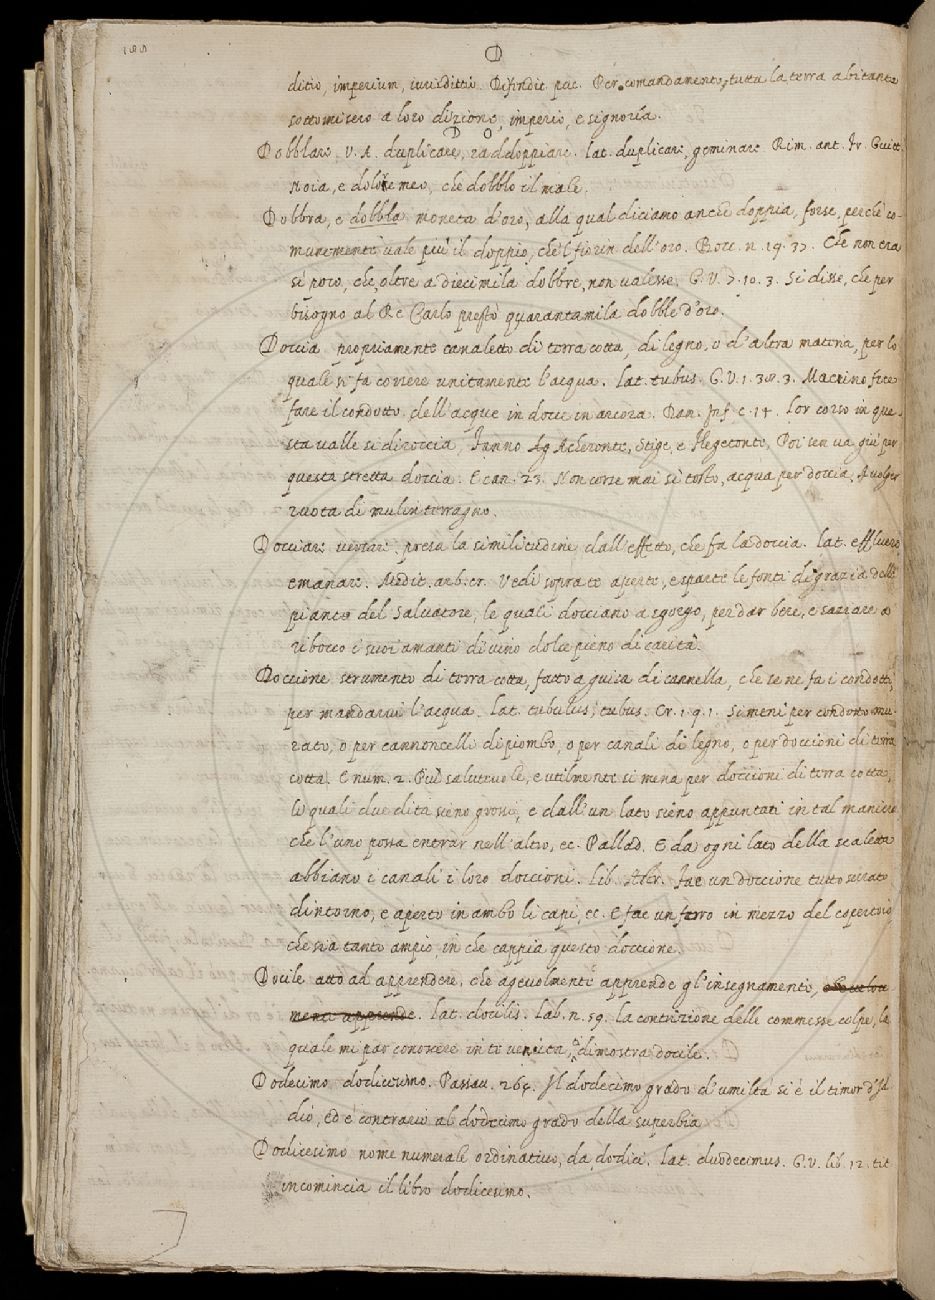 D
ditio, imperium, iurisdittio. Difendit. pac. Per comandamento, tutta la terra abitante
sottomisero a loro dizione, imperio, e signoria.
D O
Dobblare. V. A. duplicare, raddoppiare. lat. duplicare, geminare. Rim. ant. Fr. Guitt.
Noia, e dolore meo, che dobblo il male.
Dobbra, e dobbla moneta d'oro, alla qual diciamo anche doppia, forse, perchè co-
munemente vale più il doppio, che 'l fiorin dell'oro. Bocc. n. 19. 37. Che non era
sì poco, che, oltre a diecimila dobbre, non valesse. G. V. 7. 10. 3. Si disse, che per
bisogno al Re Carlo prestò quarantamila dobble d'oro.
Doccia propriamente canaletto di terra cotta, di legno, o d'altra materia, per lo
quale si fa correre unitamente l'acqua. lat. tubus. G. V. 1. 38. 3. Macrino fece
fare il condotto dell'acque in docce in arcora. Dan. Inf. c. 14. Lor corso in que-
sta valle si diroccia, Fanno Acheronte, Stige, e Flegetonte, Poi sen va giù per
questa stretta doccia. E can. 23. Non corse mai sì tosto, acqua per doccia, A volger
ruota di mulin terragno.
Docciare versare, presa la similitudine dall'effetto, che fa la doccia. lat. effluere,
emanare. Medit. arb. cr. Vedi sopra te aperte, e sparte le fonti di grazia delle
piante del Salvatore, le quali docciano a sgorgo, per dar bere, e saziare a
ribocco i suoi amanti di vino dolce pieno di carità.
Doccione strumento di terra cotta, fatto a guisa di cannella, che se ne fa i condotti,
per mandarvi l'acqua. Lat. tubulus, tubus. Cr. 1. 9. 1. Si meni per condotto mu-
rato, o per cannoncelli di piombo, o per canali di legno, o per doccioni di terra
cotta. E num. 2. Più salutevole, e utilmente si mena per doccioni di terra cotta,
li quali due dita sieno grossi, e dall'un lato sieno appuntati in tal maniera,
che l'uno possa entrar nell'altro, ec. Pallad. E da ogni lato della scalcata
abbiano i canali i loro doccioni. Lib. Astr. Fae un doccione tutto serrato
dintorno, e aperto in ambo li capi, ec. E fae un forro in mezzo del copertoio
che sia tanto ampio, in che cappia questo doccione.
Docile atto ad apprendere, che agevolmente apprende gl'insegnamento,
mente apprende. Lat. docilis. Lab. n. 59. la contrizione delle commesse colpe, la
quale mi par conoscere in te venuta, dimostra docile.
Dodecimo dodicesimo. Passav. 265. Il dodecimo grado d'umiltà si è il timor d'Id-
dio, ed è contrario al dodecimo grado della superbia.
Dodicesimo nome numerale ordinativo, da dodici. Lat. duodecimus. G. V. lib. 12. tit.
incomincia il libro dodicesimo.